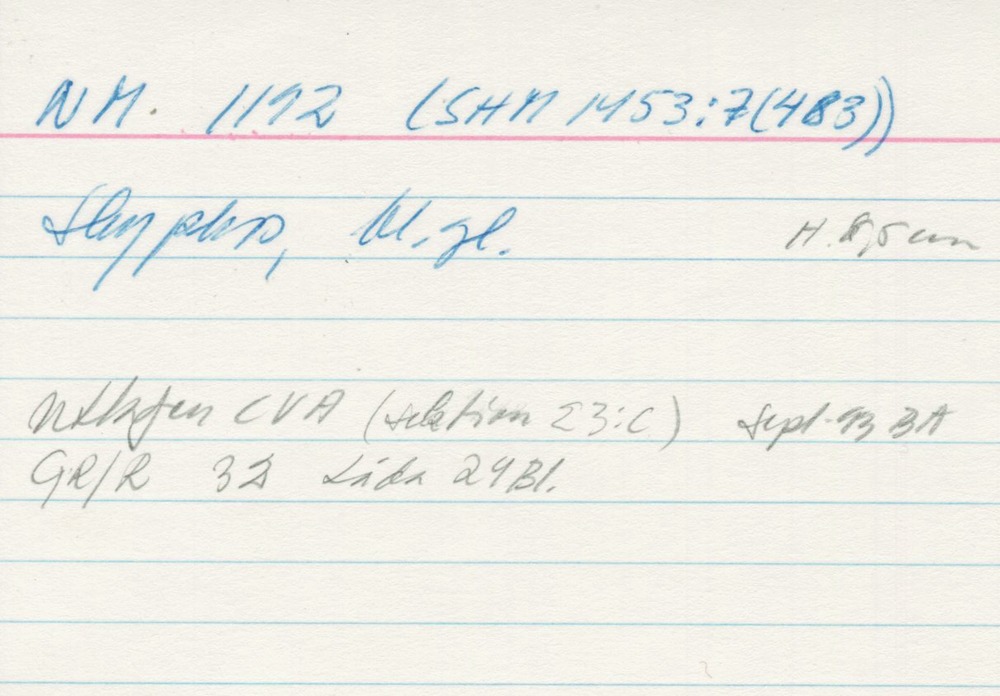 NM. 1192 (SHM 1453:7(483))
Skyphos, M. gl. H. 8,5 cm
CVA (selektion 23:C) Sept. 93 BA
GR/R 32 Låda 24 Bl.